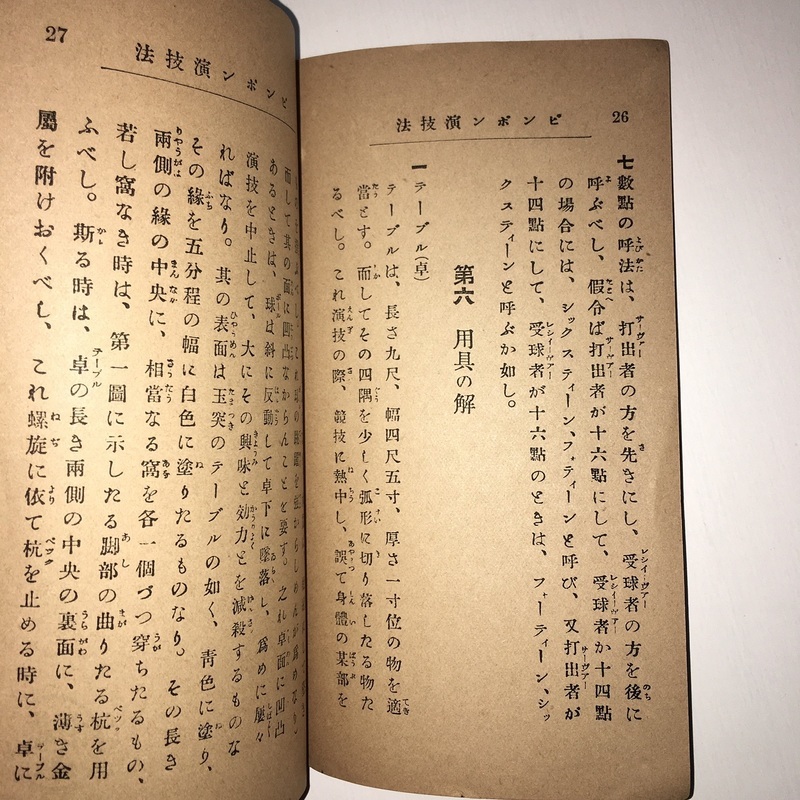 26
ピンポン演技法
七 數點の呼法は、打出者の方を先きにし、受球者の方を後に
呼ぶべし、假令ば打出者が十六點にして、受球者か十四點
の場合には、シックスティーン、フォティーンと呼び、又打出者が
十四點にして、受球者が十六點のときは、フォーティーン、シッ
クスティーンと呼ぶか如し。
第六 用具の解
一 テーブル(卓)
テーブルは、長さ九尺、幅四尺五寸、厚さ一寸位の物を適
當とす。而してその四隅を少しく弧形に切り落したる物た
るべし。これ演技の際、競技に熱中し、誤て身體の某部を
27
ピンポン演技法
而して其の面に凹凸なからんことを要す。之れ卓面に凹凸
あるときは、球は斜に反動して卓下に墜落し、爲めに屢々
演技を中止して、大にその興味と効力とを滅殺するものな
ればなり。其の表面は玉突のテーブルの如く、靑色に塗り、
その緣を五分程の幅に白色に塗りたるものなり。その長き
兩側の緣の中央に、相當なる窩を各一個づつ穿ちたるもの、
若し窩なき時は、第一圖に示したる脚部の曲りたる杭を用
ふべし。斯る時は、卓の長き兩側の中央の裏面に、薄き金
屬を附けおくべし、これ螺旋に依て杭を止める時に、卓に